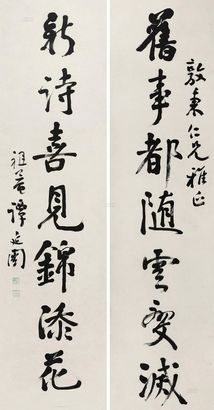 敦東仁兄雅正
舊事都隨雲變滅
新詩喜見錦添花
祖菴譚延闓